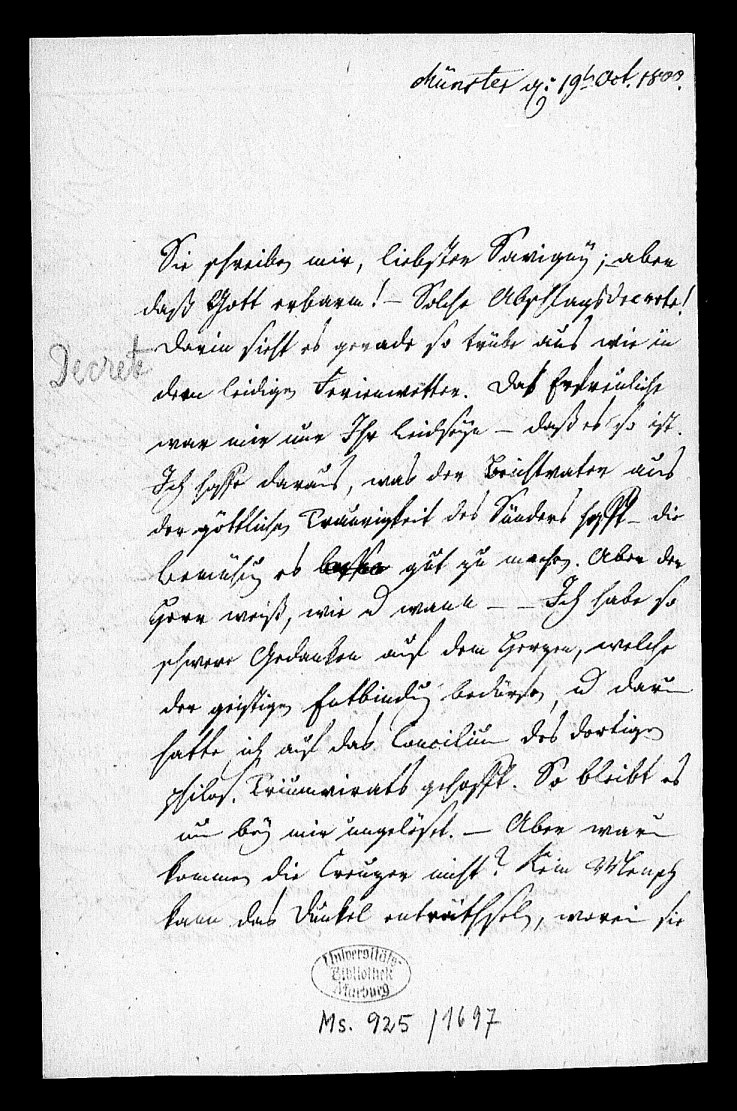 Münster d. 19t Oct. 1800.
Sie schreiben mir, liebster Savigny; – aber
daß Gott erbarm! – Solche Abschlagsdecrete!
Darin sieht es gerade so trübe aus wie in
Decrete
dem leidigen Ferienwetter. Das Erfreuliche
war mir nur Ihr Leidseyn – daß es so ist.
Ich hoffe daraus, was der Beichtvater aus
der göttlichen Traurigkeit des Sünders hofft – die
Bemühung es gut zu machen. Aber der
Herr weiß, wie u wann – – Ich habe so
schwere Gedanken auf dem Herzen, welche
der geistigen Entbindung bedürfen, u darum
hatte ich auf das Concilium des dortigen
philos. Triumvirats gehofft. So bleibt es
nun bey mir ungelöset. – Aber warum
kommen die Creuzer nicht? Kein Mensch
kann das Dunkel enträthseln, worein sie
Universitäts-
Bibliothek
Marburg
Ms. 925/1697